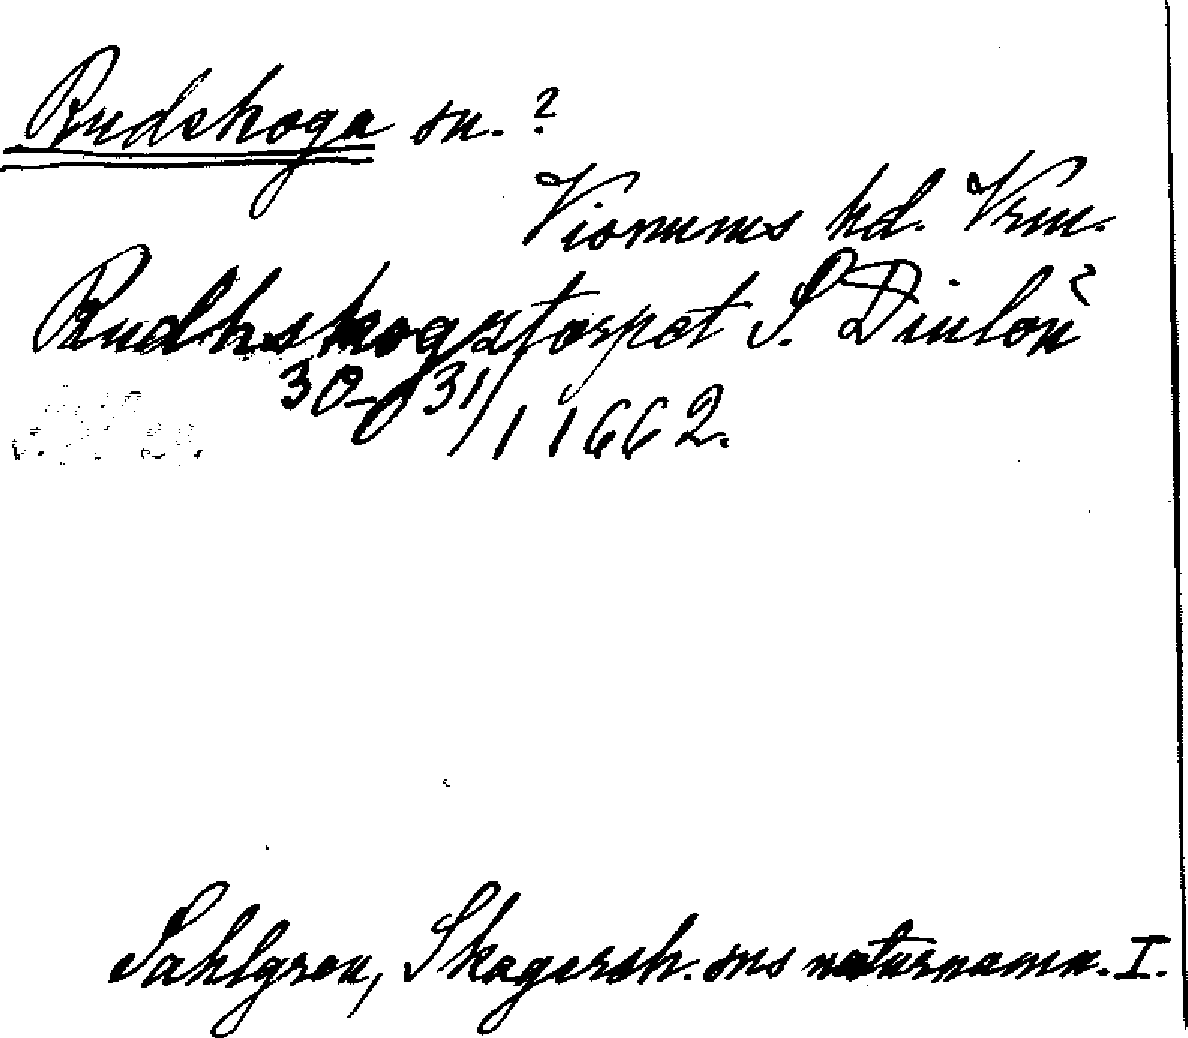 Rudskoga sn. ?
Visnums hd. Vrm.
Rudhskogstorpet S.
30-31/1 1662.
Sahlgren, Skagersh. sns naturnamn. I.